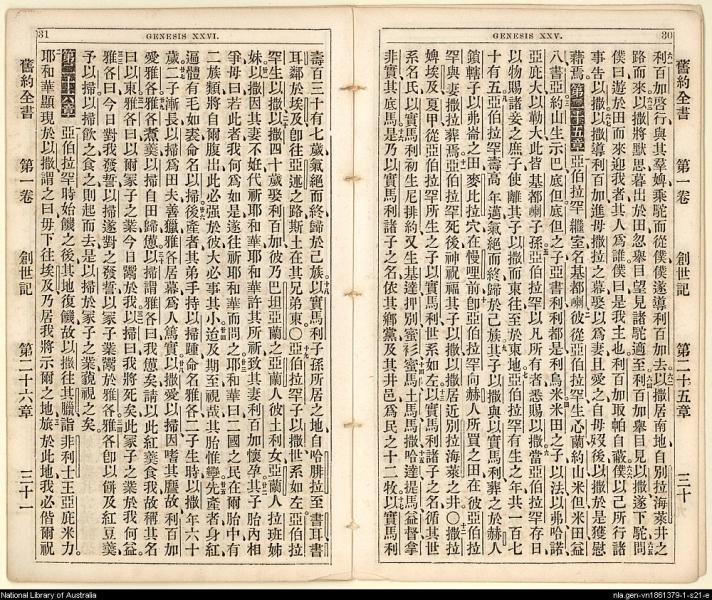 GENESIS XXV.
30
利百加啓行與其羣婢乘駝而從僕僕遂導利百加去以撒居南地自別拉海萊井之
路而來以撒將默思暮出於田忽舉目望見諸駝適至利百加舉目見以撒遂下駝問
僕曰遊於田而來迎我者其人爲誰僕曰是我主也利百加取帕自蔽僕以己所行諸
事告以撒以撒導利百加進母撒拉之幕娶以爲妻且愛之自母歿後以撒於是獲慰
藉焉第二十五章亞伯拉罕繼室名基都喇彼從亞伯拉罕生心蘭約山米但米田益
八書亞約山生示巴底但底但之子亞書利利都是利烏米米田之子以法以弗哈諾
亞庇大以勒大此皆基都喇子孫亞伯拉罕以凡所有者悉賜以撒當亞伯拉罕存日
以物賜諸妾之庶子使離其子以撒而東往至於東地亞伯拉罕有生之年共一百七
十有五亞伯拉罕壽高年邁氣絕而終歸於己族其子以撒與以實馬利葬之於赫人
鎖轄子以弗崙之田麥比拉穴在慢哩前卽亞伯拉罕向赫人所買之田在彼亞伯拉
罕與妻撒拉葬焉亞伯拉罕死後神祝福其子以撒以撒居近別拉海萊之井○撒拉
婢埃及夏甲從亞伯拉罕所生之子以實馬利世系如左以實馬利諸子之名循其世
系名氏以實馬利初生尼排約又生基達押別蜜衫蜜馬土馬馬撒哈達提馬益督拿
非實其底馬是乃以實馬利諸子之名依其鄉黨及其井邑爲民之十二牧以實馬利
舊約全書 第一卷 創世記 第二十五章 三十
GENESIS XXVI.
31
壽百三十有七歲氣絕而終歸於己族以實馬利子孫所居之地自哈腓拉至書耳書
耳鄰於埃及卽往亞述之路斯土在其兄弟東○亞伯拉罕子以撒世系如左亞伯拉
罕生以撒以撒四十歲娶利百加彼乃巴坦亞蘭之亞蘭人彼土利女亞蘭人拉班姊
妹以撒因其妻不姙代祈耶和華耶和華許其所祈致其妻利百加懷孕其子胎內相
爭母曰若此者我何爲如是遂往祈耶和華而問之耶和華曰二國之民在爾胎中有
二族類將自爾腹出此必强於彼大必事其小迨及期至視哉其胎惟孿先產者身紅
遍體有毛如裘命名以掃後產者其弟手持以掃踵命名雅各二子生時以撒年六十
歲二子漸長以掃爲田夫善獵雅各居幕爲人篤實以撒愛以掃因嗜其麕故利百加
愛雅各雅各煮羹以掃自田歸憊以掃謂雅各曰我憊矣請以此紅羹食我故稱其名
曰以東雅各曰以爾冢子之業今日鬻於我以掃曰我將死矣此冢子之業於我何益
雅各曰今日對我發誓以掃遂對之發誓以冢子業鬻於雅各雅各卽以餅及紅豆羹
予以掃以掃飲之食之則起而去是以掃於冢子之業藐視之矣
第二十六章 亞伯拉罕時始饑之後其地復饑故以撒往其臘詣非利士王亞庇米力
耶和華顯現於以撒謂之曰毋下往埃及乃居我將示爾之地旅於此地我必偕爾祝
舊約全書 第一卷 創世記 第二十六章 三十一
National Library of Australia
nla.gen-vn1861379-1-s21-e